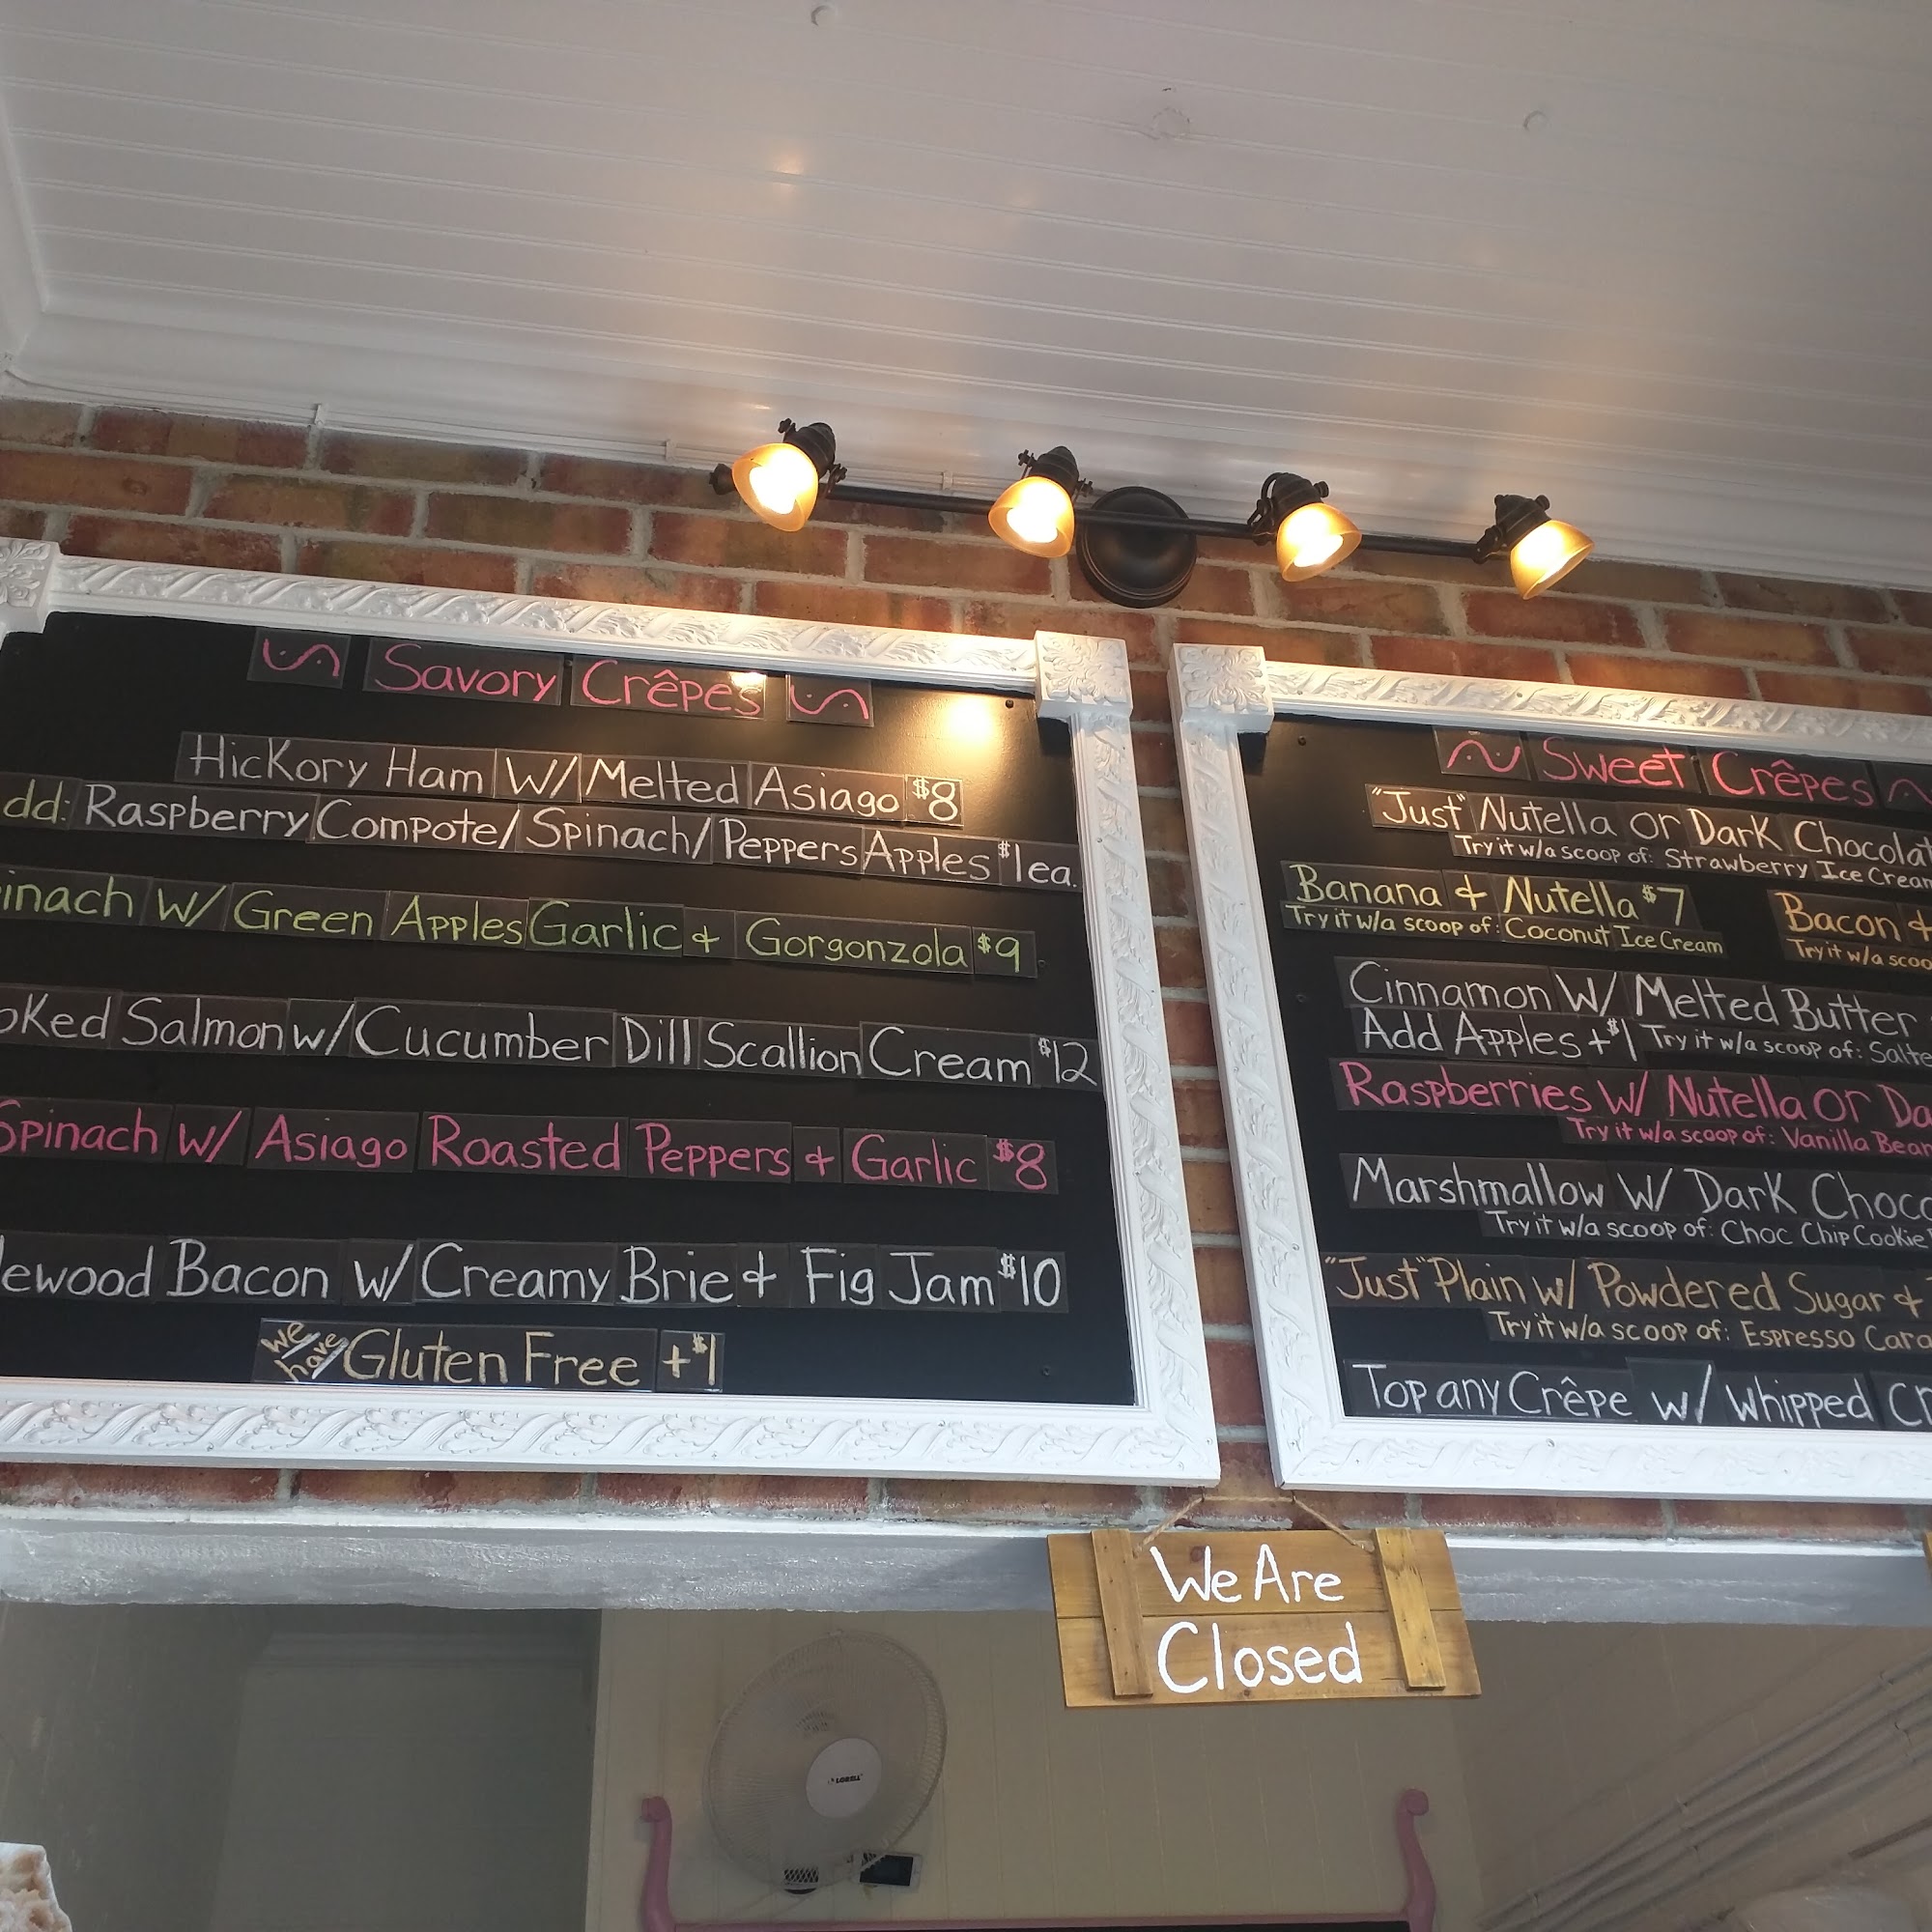 Savory Crêpes
Hickory Ham W/ Melted Asiago $8
dd: Raspberry Compote/ Spinach/ Peppers Apples $1ea.
inach W/ Green Apples Garlic & Gorgonzola $9
oked Salmon w/ Cucumber Dill Scallion Cream $12
Spinach w/ Asiago Roasted Peppers & Garlic $8
lewood Bacon w/ Creamy Brie & Fig Jam $10
we have Gluten Free +$1
Sweet Crêpes
"Just" Nutella or Dark Chocolat
Try it w/a scoop of: Strawberry Ice Cream
Banana & Nutella $7
Try it w/a scoop of: Coconut Ice Cream
Bacon &
Try it w/a scoo
Cinnamon W/ Melted Butter
Add Apples +$1 Try it w/a scoop of: Salte
Raspberries W/ Nutella or Da
Try it w/a scoop of: Vanilla Bean
Marshmallow W/ Dark Choco
Try it w/a scoop of: Choc Chip Cookie
"Just" Plain w/ Powdered Sugar &
Try it w/a scoop of: Espresso Cara
Top any Crêpe w/ Whipped Cr
We Are
Closed